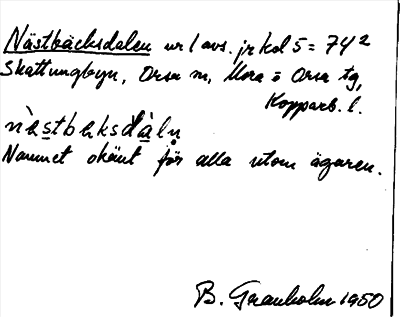 Nästbäcksdalen ur l avs. jrkd 5 = 74²
Skattungbyn, Orsa sn, Mora o Orsa tg,
Kopparb. l.
nὲstbɛksdàlņ
Namnet okänt för alla utom ägaren.
B. Granholm 1950